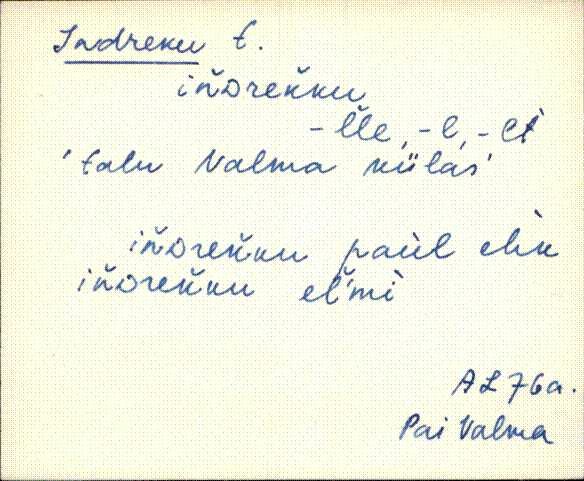 Indreku t.
iňdreǩku
-lle, -l, -lt
'talu Valma külas'
iňdreǩku paùl elìk
iňdreǩku eľmì
AL 76a.
Pai Valma